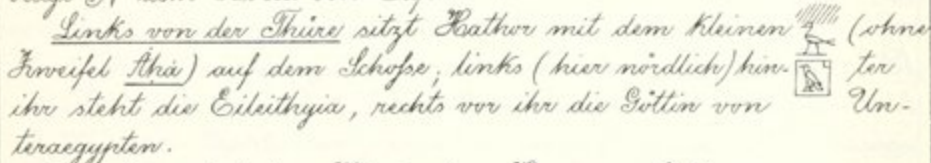 Links von der Thüre sitzt Hathor mit dem kleinen (ohne
Zweifel Áḥà) auf dem Schoße, links (hier nördlich) hin- ter
ihr steht die Eileithyia, rechts vor ihr die Göttin von Un-
teraegypten.